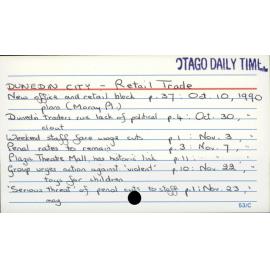 OTAGO DAILY TIMES
DUNEDIN CITY - Retail Trade
New office and retail block p.37: Oct. 10, 1990
plans (Moray Pl.)
Dunedin Traders rue lack of political p.4: Oct. 30, "
clout
Weekend staff face wage cuts p.1: Nov. 3, "
'Penal rates to remain' p.3: Nov. 7, "
Plaza Theatre Mall has historic link p.11: " "
Group urges action against 'violent' p.10: Nov 22, "
toys for children
'Serious threat' of penal cuts to staff p.1: Nov. 23, "
may
53/C